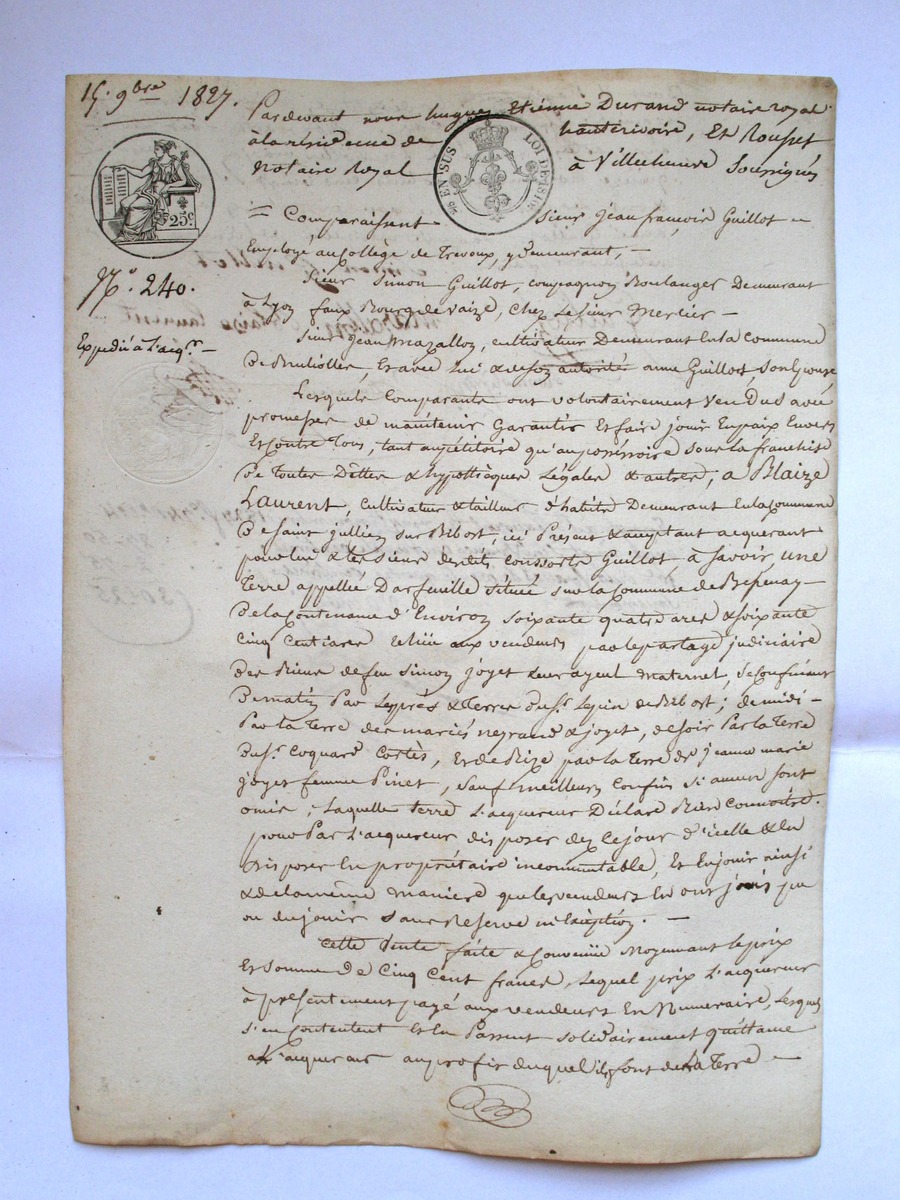 15. 9bre 1827.
Pardevant nous hugues Etienne Durand notaire royal
à la residence de hauterivoire, Et Rousset
notaire Royal à Villecheneve Soussignés
EN SUS LOI DE
25c.
= Comparaissent Sieur Jean françois Guillot –
Employé au Collège de trevoux, y demeurant, –
No. 240.
Sieur Simon Guillot, compagnon Boulanger Demeurant
à Lyon faux Bourg de vaize, Chez Le Sieur Mercier –
Expédié à L'acqr. –
Sieur Jean mazallon, cultivateur Demeurant En la Commune
De Brullioles, Et avec Lui & de son autorité anne Guillot, Son Epouse,
Lesquels Comparants ont volontairement Vendus avec
promesses de maintenir Garantir Et faire jouir En paix Envers
Et Contre Tous, tant au pétitoire qu'au possessoire sous la franchise
De toutes Dettes & hypothèques Légales & autres, a Blaize
Laurent, Cultivateur & tailleur d'habits Demeurant En la Commune
De Saint jullien sur Bibost, ici Présent & acceptant acquerant
pour lui & les siens desdits Conssorts Guillot, à Savoir, une
Terre appellée Darfeuille située sur la Commune de Bessenay –
De la Contenance d'Environ soixante quatre ares & soixante
Cinq Centiares échüe aux vendeurs par le partage judiciaire
Des Biens de feu Simon joyet Leur ayeul maternel, se Confinant
De matin Par Les prés & terres du Sr. Lepin de Bibost; de midi –
Par la Terre des mariés negrand & joyet, de soir Par la Terre
Du Sr. Coquard Cortès, Et de Bize par la Terre de jeanne marie
joyet femme Pinet, Sauf meilleurs Confins Si aucun sont
omis; Laquelle terre L'acquereur Déclare Bien Connoitre.
pour Par L'acquereur disposer dez Le jour d'icelle & En
Disposer En propriétaire incommutable, Et En jouir ainsi
& de la même manière que les vendeurs En ont jouis pu
ou du jouir sans Reserve ni Exception. –
Cette Vente faite & Convenüe Moyennant Le prix
Et Somme De Cinq Cent francs, Lequel prix L'acquereur
à présentement payé aux vendeurs En Numeraire, Lesquels
s'en Contentent Et En Passent solidairement quittance
a L'acquereur au profit duquel ils font de la Terre –